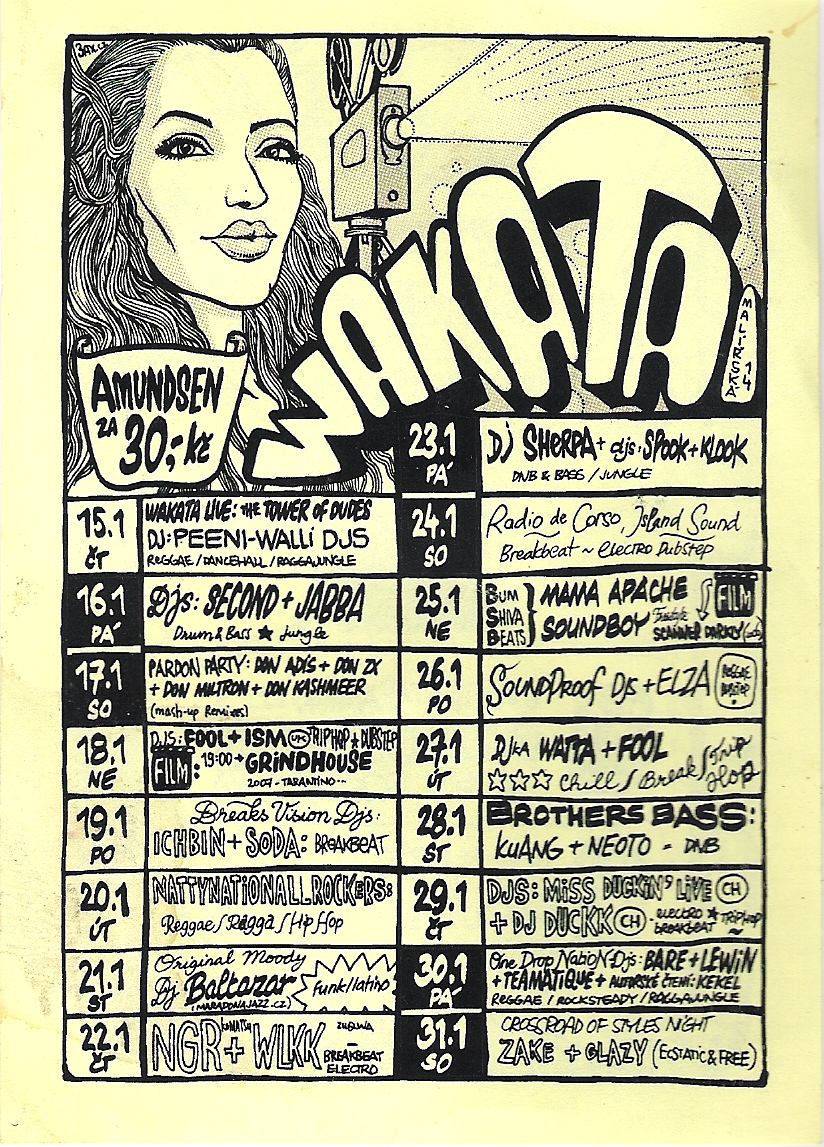 WAKATA
MALÍŘSKÁ 14
AMUNDSEN
ZA 30,- Kč
15.1 ČT
WAKATA LIVE: THE TOWER OF DUDES
DJ: PEENI-WALLI DJS
REGGAE / DANCEHALL / RAGGAJUNGLE
16.1 PÁ
DJs: SECOND + JABBA
Drum & Bass ★ jungle
17.1 SO
PARDON PARTY: DON ADIS + DON ZX
+ DON MILTRON + DON KASHMEER
(mash-up Remixes)
18.1 NE
DJS: FOOL + ISM UK TRIPHOP + DUBSTEP
FILM: 19:00 → GRINDHOUSE
2007 - TARANTINO...
19.1 PO
Breaks Vision Djs:
ICHBIN + SODA: BREAKBEAT
20.1 ÚT
NATTYNATIONALL ROCKERS:
Reggae / Ragga / Hip Hop
21.1 ST
Original Moody
Dj Baltazar Funk/latino
(MARADONAJAZZ.CZ)
22.1 ČT
NGR + WLKK
BREAKBEAT
ELECTRO
23.1 PÁ
Dj SHERPA + djs: SPOOK + KLOOK
DNB & BASS / JUNGLE
24.1 SO
Radio de Corso, Island Sound
Breakbeat ~ electro Dubstep
25.1 NE
BUM SHIVA BEATS } MAMA APACHE FILM
SOUNDBOY Freestyle SCANNER DARKLY
26.1 PO
SOUNDPROOF DJs + ELZA REGGAE DUBSTEP
27.1 ÚT
DJka WATTA + FOOL
☆☆☆ Chill / Break / Trip Hop
28.1 ST
BROTHERS BASS:
KUANG + NEOTO - DNB
29.1 ČT
DJS: MISS DUCKIN' LIVE CH
+ DJ DUCKK CH - ELECTRO ★ TRIPHOP
BREAKBEAT
30.1 PÁ
One Drop Nation Djs: BARE + LEWIN
+ TEAMATIQUE + AUTORSKÉ ČTENÍ: KEKEL
REGGAE / ROCKSTEADY / RAGGAJUNGLE
31.1 SO
CROSSROAD OF STYLES NIGHT
ZAKE + GLAZY (ECSTATIC & FREE)